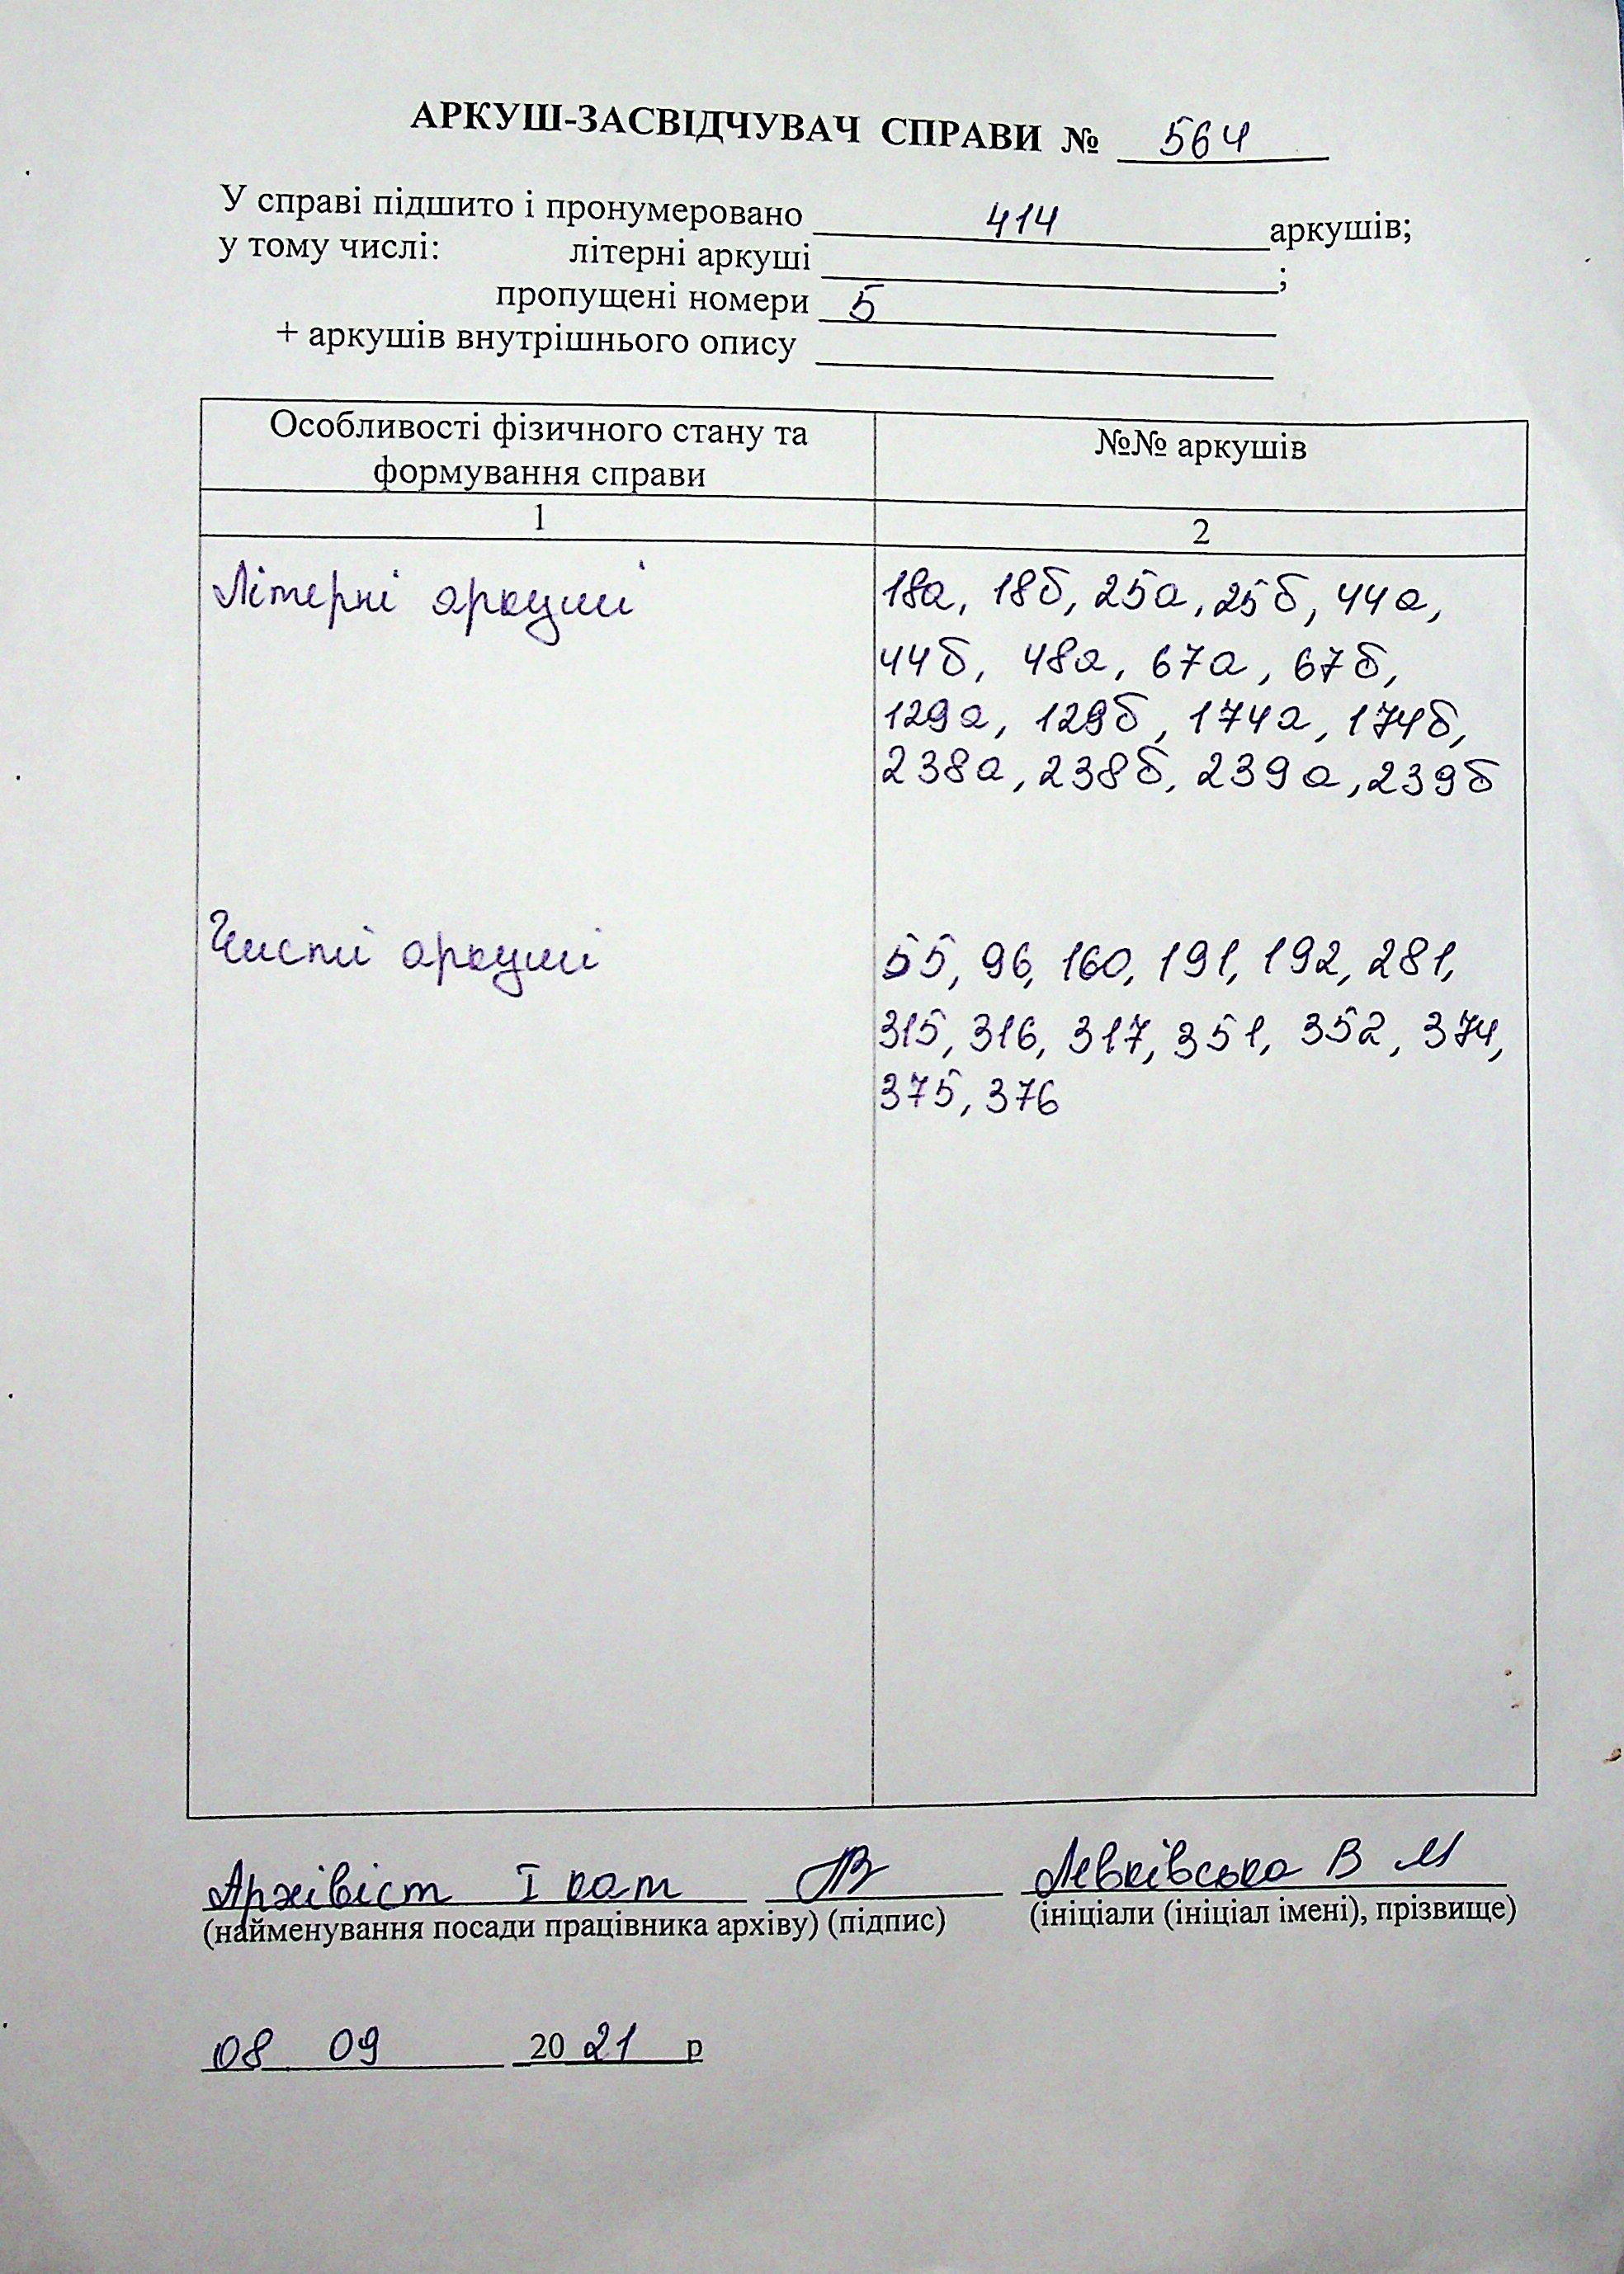 АРКУШ-ЗАСВІДЧУВАЧ СПРАВИ № 564
У справі підшито і пронумеровано 414 аркушів;
у тому числі: літерні аркуші ;
пропущені номери 5
+ аркушів внутрішнього опису
Особливості фізичного стану та
формування справи
№№ аркушів
1
2
Літерні аркуші
18а, 18б, 25а, 25б, 44а,
44б, 48а, 67а, 67б,
129а, 129б, 174а, 174б,
238а, 238б, 239а, 239б
Чисті аркуші
55, 96, 160, 191, 192, 281,
315, 316, 317, 351, 352, 374,
375, 376
Архівіст I кат Левківська В М
(найменування посади працівника архіву) (підпис) (ініціали (ініціал імені), прізвище)
08 09 2021 р